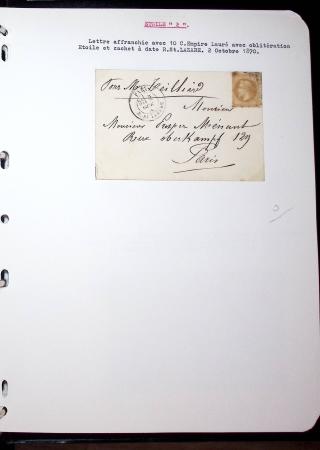 ETOILE " 2 ".
Lettre affranchie avec 10 C.Empire Lauré avec oblitération
Etoile et cachet à date R.St.LAZARE. 2 Octobre 1870.
Pour Mr
Monsieur
Monsieur Prosper Ménant
Rue oberkampf 129
Paris